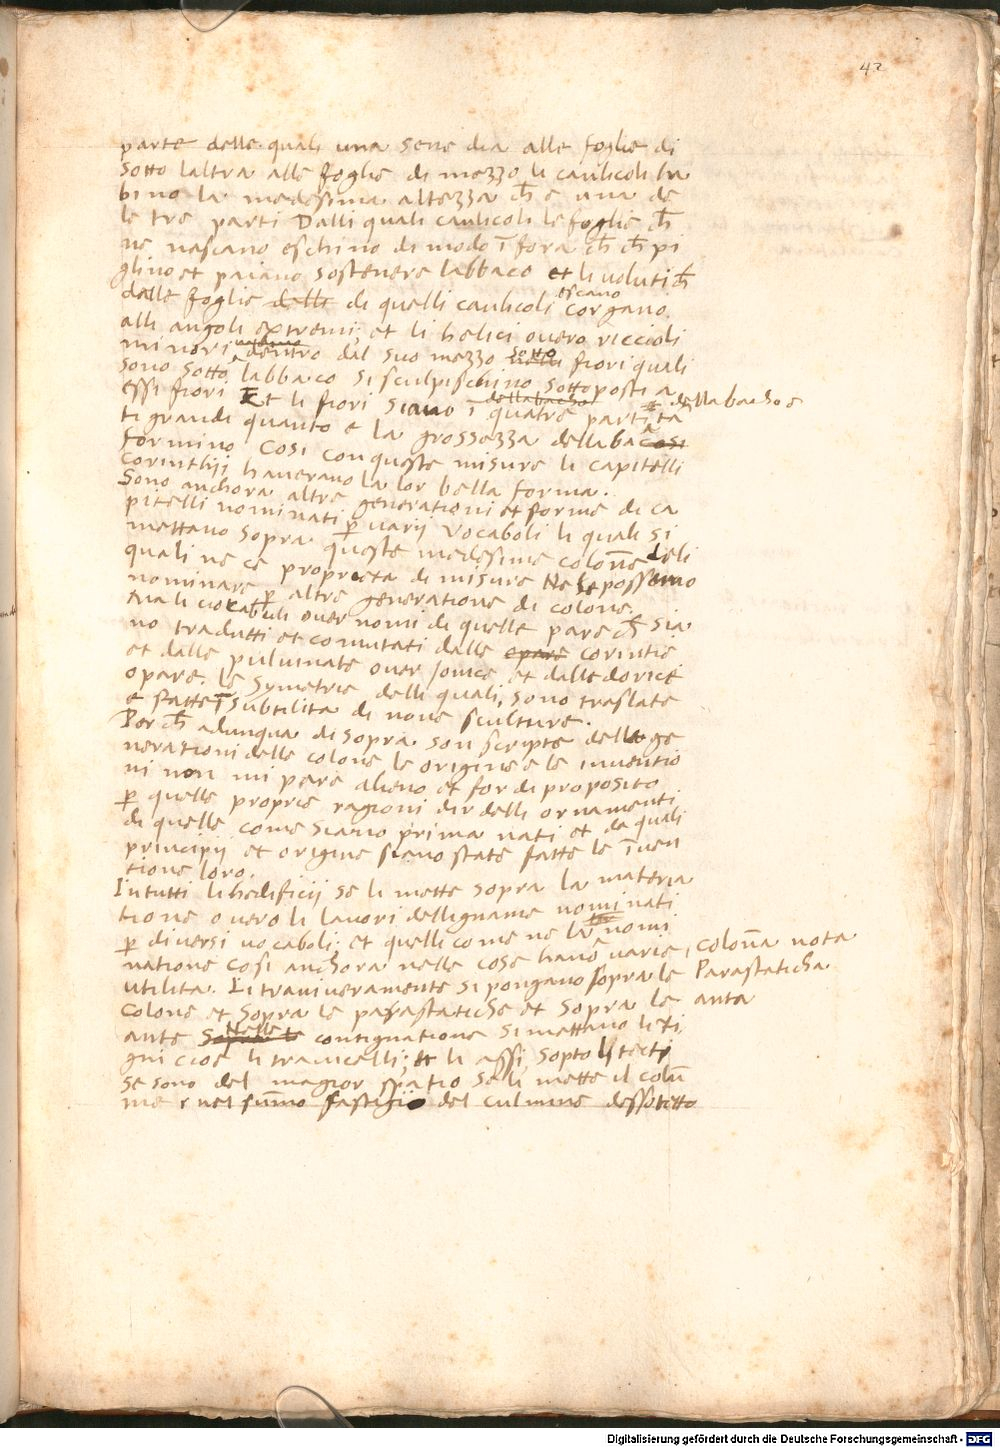 42
parte delle quali una serve dia alle foglie di
sotto laltra alle foglie di mezzo, li caulicoli ha
bino la medesima altezza ch̄ e una de
le tre parti Dalli quali caulicoli le foglie ch̄
ne nascano eschino di modo ī fora ch̄ ch̄ pi
glino et paiano sostenere labbaco et li voluti ch̄
dalle foglie delle di quelli caulicoli escano corgano
alli angoli extremi; et li helici overo riccioli
minori dentro dal suo mezzo sotto fiori quali
sono sotto labbaco si sculpischino sottoposti a
essi fiori Et li fiori siano ī quatre parti ta dellabachos
ti grandi quanto e la grossezza dellabaco Cosi
formino Cosi con queste misure li capitelli
Corinthij haverano la lor bella forma.
Sono anchora altre generationi et forme di ca
pitelli nominati p̄ varij vocaboli li quali si
mettano sopra queste medesime colon̄e deli
quali ne ce proprieta di misure Ne le possemo
nominare p̄ altre generatione di colone.
Ma li vocabuli over nomi di quelle pare ch̄ sia
no tradutti et comutati dalle opare corintie
et dalle pulvinate over Jonice et dalle dorice
opare. Le Symetrie delli quali, sono traslate
e fatte ī subtilita di nove sculture.
Per ch̄ adunqua di sopra son scripte delle ge
nerationi delle colone le origine e le inventio
ni non mi pare alieno et for di proposito
p̄ quelle proprie ragioni dir delli ornamenti
di quelle come siano prima nati et da quali
principij et origine siano state fatte le īven
tione loro.
In tutti li hedificij se li mette sopra la materia
tione overo li lavori delligname nominati
p̄ diversi vocaboli; et quelli come ne la nomi
natione cosi anchora nelle cose hano varie colon̄a nota
utilita. Li travi veramente si pongano sopra le Parastaticha
colone et sopra le parastatiche et sopra le anta
ante Nelle contignatione si mettano li ti
gni cioe li travicelli; et li assi, sopto li tecti
se sono del magior spatio se li mette il colū
me nel sum̄o fastigio del culmine desso tetto
Digitalisierung gefördert durch die Deutsche Forschungsgemeinschaft - DFG